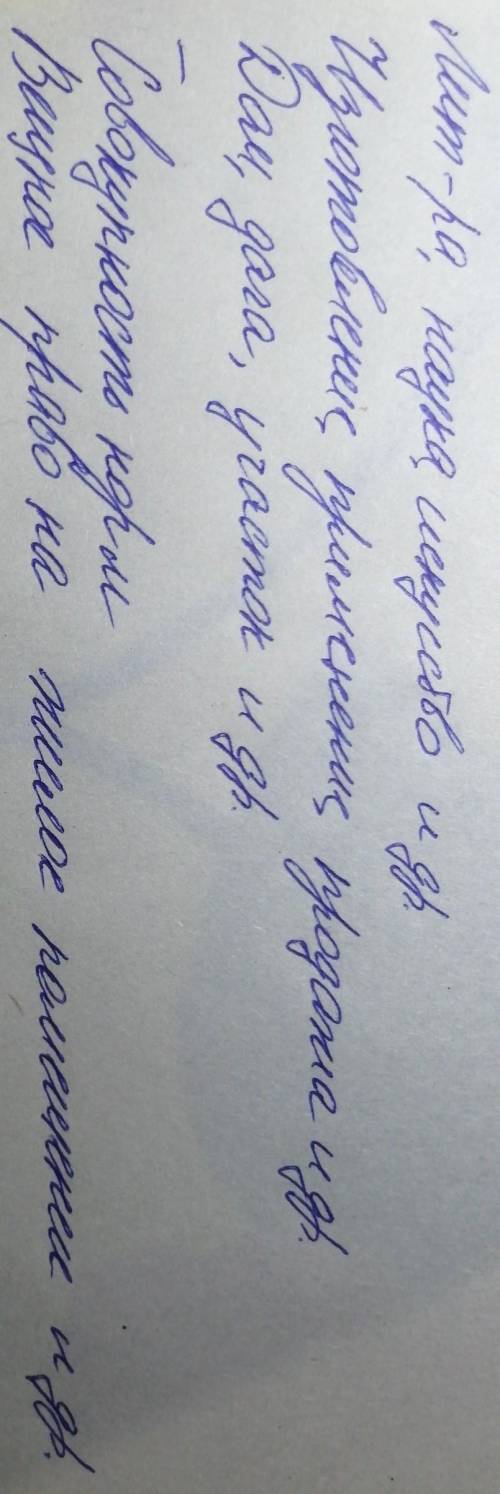 Лит-ра, наука, искусство и др.
Изготовление, применение, продажа и др.
Дом, дача, участок и др.
–
Совокупность норм
Вещное право на жилое помещение и др.